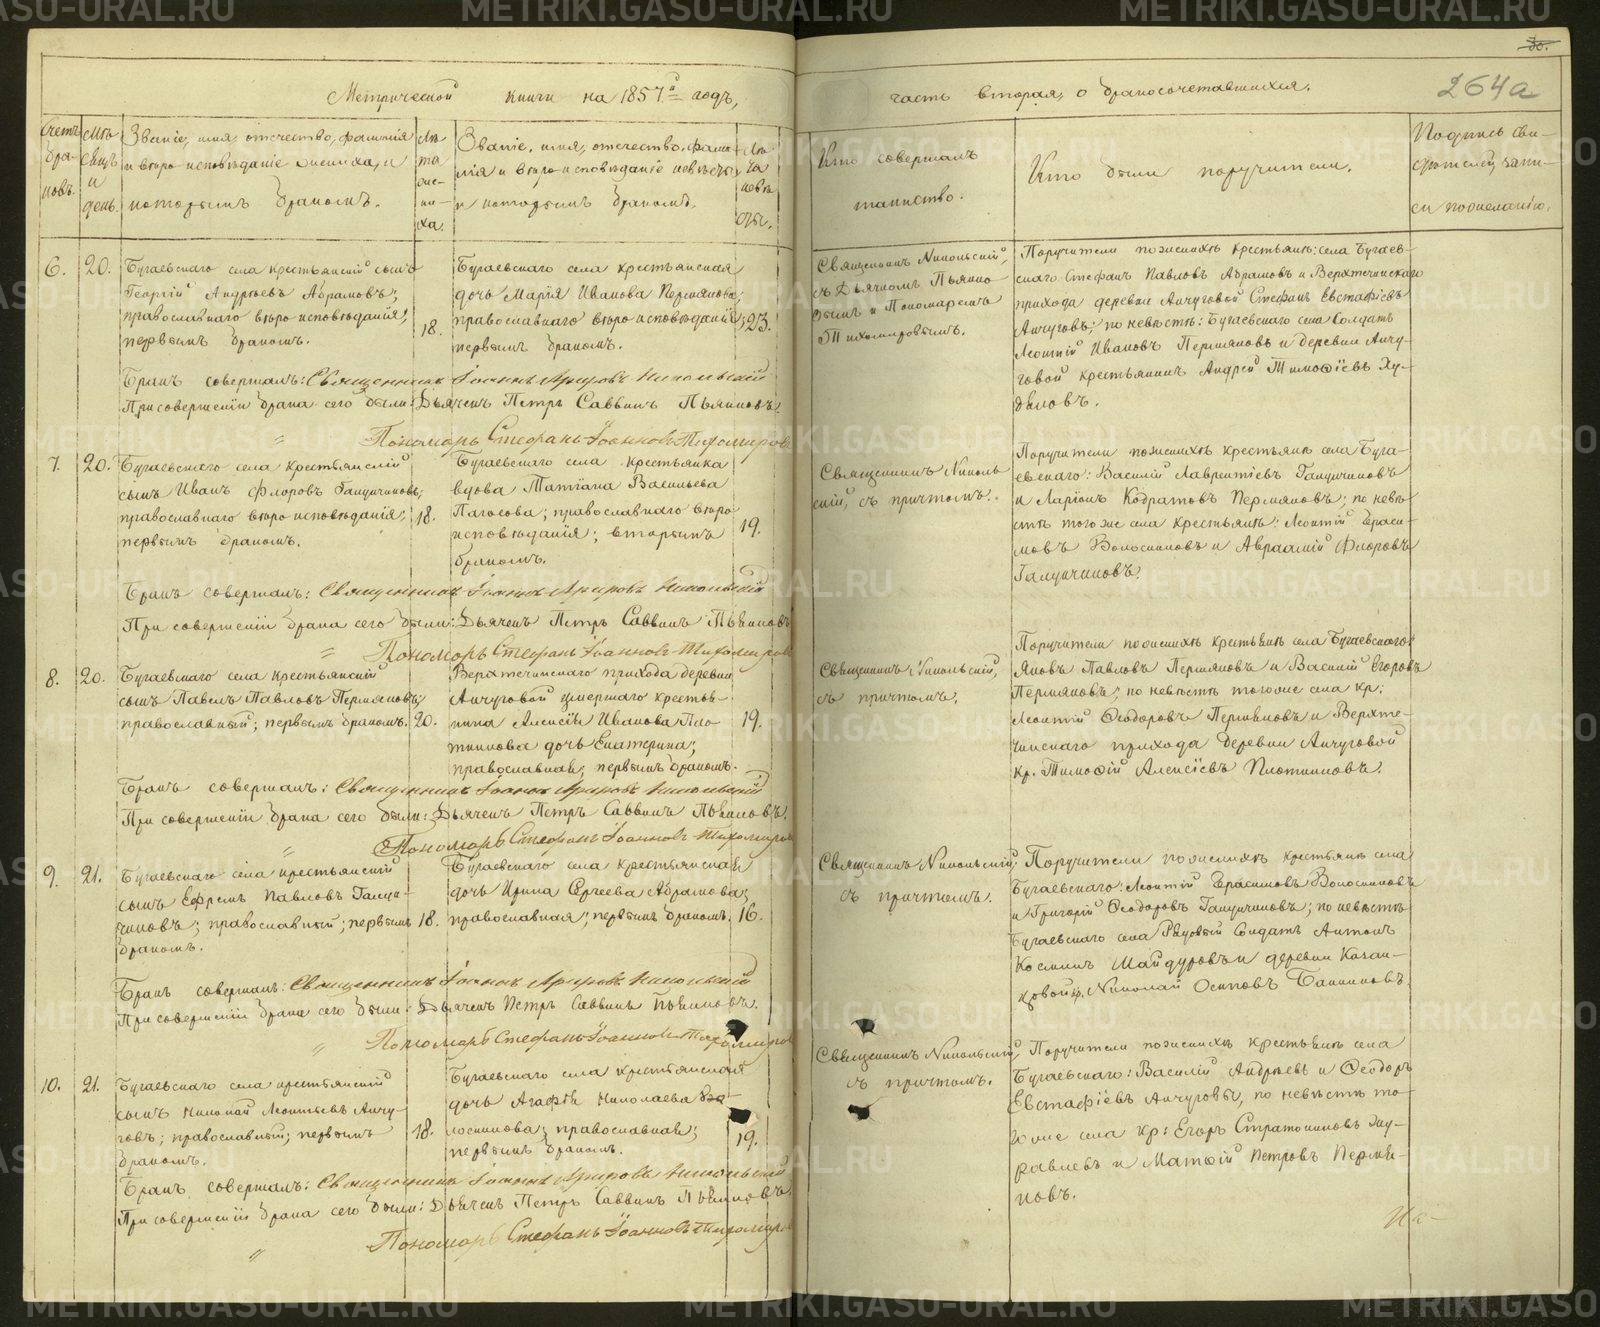 Метрической книги на 1857й годъ,
Счетъ браковъ.
Мѣсяцъ и день.
Званіе, имя, отчество, фамилія
и вѣроисповѣданіе жениха, и
которымъ бракомъ.
Лѣта жениха.
Званіе, имя, отчество, фами-
лія и вѣроисповѣданіе невѣсты
и которымъ бракомъ.
Лѣта невѣсты.
6. 20.
Бугаевскаго села крестьянскій сынъ
Георгій Андреевъ Абрамовъ;
православнаго вѣроисповѣданія;
первымъ бракомъ.
18.
Бугаевскаго села крестьянская
дочь Марія Иванова Пермякова;
православнаго вѣроисповѣданія;
первымъ бракомъ.
23.
Бракъ совершалъ: Священникъ Іоаннъ Никольскій
При совершеніи брака сего были: Дьячекъ Петръ Саввинъ Пьянковъ.
Пономарь Стефанъ Іоанновъ Тихомировъ
7. 20.
Бугаевскаго села крестьянскій
сынъ Иванъ Флоровъ Галунчиковъ;
православнаго вѣроисповѣданія;
первымъ бракомъ.
18.
Бугаевскаго села крестьянка
вдова Татіана Васильева
православнаго вѣро
исповѣданія; вторымъ
бракомъ.
19.
Бракъ совершалъ: Священникъ Іоаннъ Никольскій
При совершеніи брака сего были: Дьячекъ Петръ Саввинъ Пьянковъ
Пономарь Стефанъ Іоанновъ Тихомировъ
8. 20.
Бугаевскаго села крестьянскій
сынъ Павелъ Павловъ Пермяковъ;
православный; первымъ бракомъ.
20.
Верхтечинскаго прихода деревни
Анчуговой умершаго крестья-
нина Алексія Иванова Пло
тникова дочь Екатерина;
православная; первымъ бракомъ.
19.
Бракъ совершалъ: Священникъ Іоаннъ Никольскій
При совершеніи брака сего были: Дьячекъ Петръ Саввинъ Пьянковъ.
Пономарь Стефанъ Іоанновъ Тихомировъ
9. 21.
Бугаевскаго села крестьянскій
сынъ Ефремъ Павловъ Галун-
чиковъ; православный; первымъ
бракомъ.
18.
Бугаевскаго села крестьянская
дочь Ирина Сергеева Абрамова;
православная; первымъ бракомъ.
16.
Бракъ совершалъ: Священникъ Іоаннъ Никольскій
При совершеніи брака сего были: Дьячекъ Петръ Саввинъ Пьянковъ.
Пономарь Стефанъ Іоанновъ Тихомировъ
10. 21.
Бугаевскаго села крестьянскій
сынъ Николай Леонтьевъ Анчу-
говъ; православный; первымъ
бракомъ.
18.
Бугаевскаго села крестьянская
дочь Агафія Николаева Во-
лосникова; православная;
первымъ бракомъ.
19.
Бракъ совершалъ: Священникъ Іоаннъ Никольскій
При совершеніи брака сего были: Дьячекъ Петръ Саввинъ Пьянковъ.
Пономарь Стефанъ Іоанновъ Тихомировъ
30.
264а
часть вторая, о бракосочетавшихся.
Кто совершалъ
таинство.
Кто были поручители.
Подпись сви-
дѣтелей запи-
си по желанію.
Священникъ Никольскій,
съ Дьячкомъ Пьянко
вымъ и Пономаремъ
Тихомировымъ.
Поручители по женихѣ крестьяне: села Бугаев-
скаго Стефанъ Павловъ Абрамовъ и Верхтечинскаго
прихода деревни Анчуговой Стефанъ Евстафіевъ
Анчуговъ; по невѣстѣ: Бугаевскаго села Солдатъ
Леонтій Ивановъ Пермяковъ и деревни Анчу-
говой крестьянинъ Андрей Тимофіевъ Ху-
дяковъ.
Священникъ Николь
скій, съ причтомъ.
Поручители по женихѣ крестьяне села Буга-
евскаго: Василій Лаврентіевъ Галунчиковъ
и Ларіонъ Кодратовъ Пермяковъ; по невѣ-
стѣ того же села крестьяне: Леонтій Гераси-
мовъ Волосниковъ и Авраамій Флоровъ
Галунчиковъ.
Священникъ Никольскій,
съ причтомъ.
Поручители по женихѣ крестьяне села Бугаевскаго:
Яковъ Павловъ Пермяковъ и Василій Егоровъ
Пермяковъ; по невѣстѣ того же села кр:
Леонтій Ѳеодоровъ Пермяковъ и Верхте-
чинскаго прихода деревни Анчуговой
кр. Тимофій Алексіевъ Плотниковъ.
Священникъ Никольскій,
съ причтомъ.
Поручители по женихѣ крестьяне села
Бугаевскаго: Леонтій Герасимовъ Волосниковъ
и Григорій Ѳеодоровъ Галунчиковъ; по невѣстѣ
Бугаевскаго села Рядовый Солдатъ Антонъ
Косминъ Майдуровъ и деревни Казан-
цовой кр. Николай Осиповъ Банниковъ.
Священникъ Никольскій,
съ причтомъ.
Поручители по женихѣ крестьяне села
Бугаевскаго: Василій Андреевъ и Ѳеодоръ
Евстафіевъ Анчуговы, по невѣстѣ то-
го же села кр: Егоръ Стратониковъ Жу-
равлевъ и Матѳій Петровъ Пермя-
ковъ.
METRIKI.GASO-URAL.RU